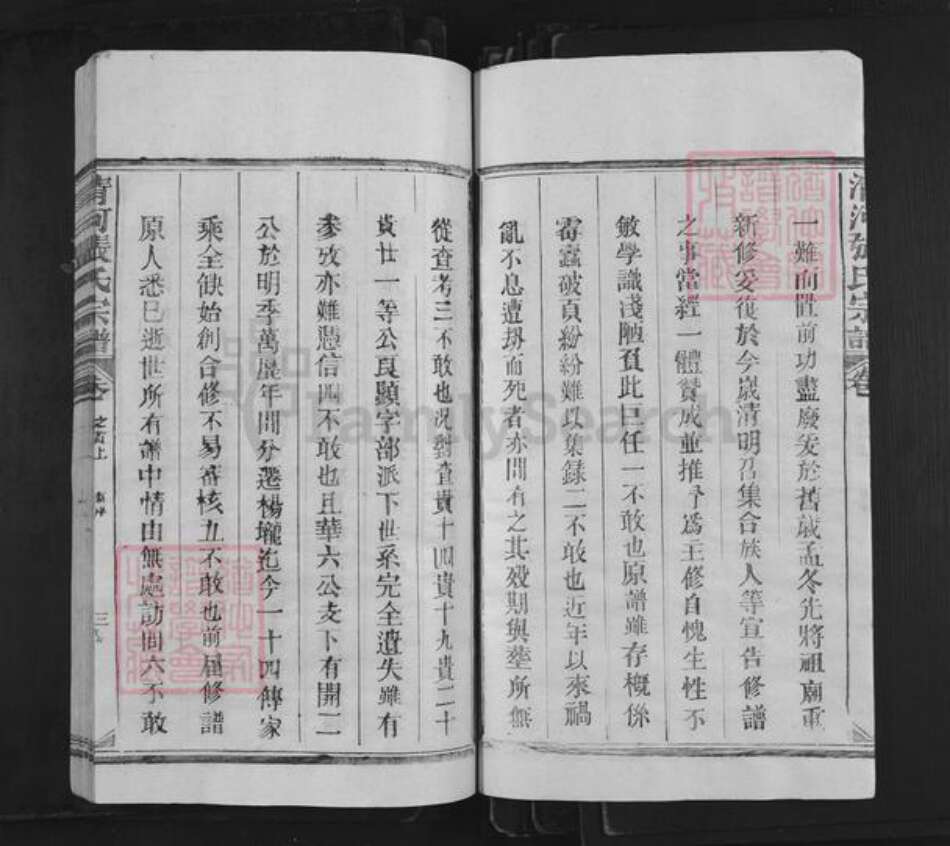 清河張氏宗譜
一難而前功盡廢爰於舊歲孟冬先將祖廟重
新修妥復於今歲清明召集合族人等宣告修譜
之事當經一體贊成並推予為主修自愧生性不
敏學識淺陋負此巨任一不敢也原譜雖存概係
霉蠧破頁紛紛難以集錄二不敢也近年以來禍
亂不息遭刼而死者亦間有之其歿期與塟所無
從查考三不敢也況對查貴十四貴十九貴二十
貴廿一等公良顯字部派下世系完全遺失雖有
參攷亦難憑信四不敢也且華六公支下有開二
公於明季萬歷年間分遷楊壠迄今一十四傳家
乘全缺始創合修不易審核五不敢也前届修譜
原人悉已逝世所有譜中情由無處訪問六不敢
清河張氏宗譜
卷之首上
三
FamilySearch